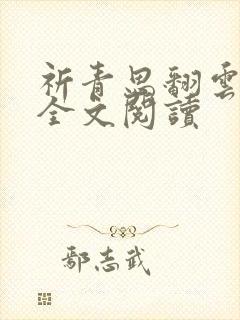 祈青思翻雲
全文閱讀
鄢志武